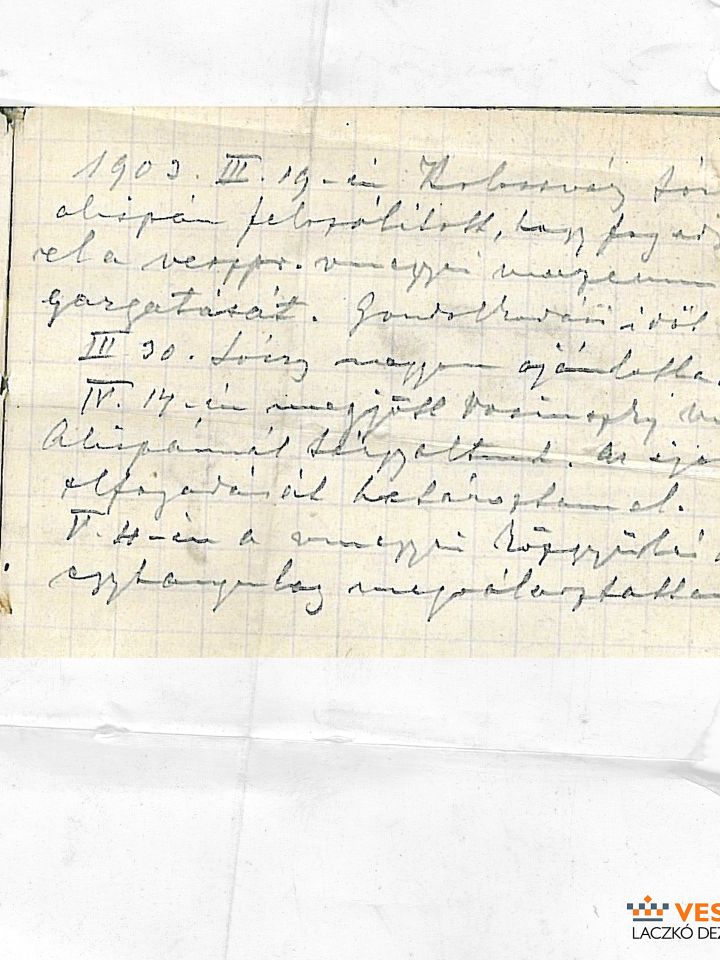 1903. III. 19-én Kolossváry
alispán felszólított, hogy
el a veszpr. vmegyei muzeum
gazgatását. Gondolkodási időt
III 30. Lóczy nagyon ajánlotta
IV. 14-én megjött Wosinszky
Alispánnál tárgyaltunk. Az
elfogadását határoztam el.
V. 4-én a vmegyei közgyűlés
egyhangulag megválasztottam
VES
LACZKÓ DEZ